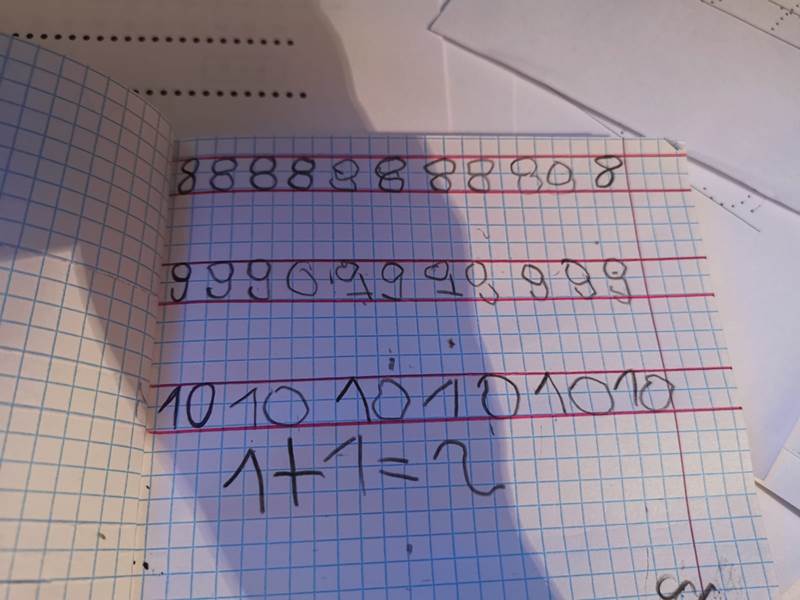 8 8 8 8 8 8 8 8 8 0 8
9 9 9 0 9 9 9 9 9 9 9
10 10 10 10 10 10
1+1=2